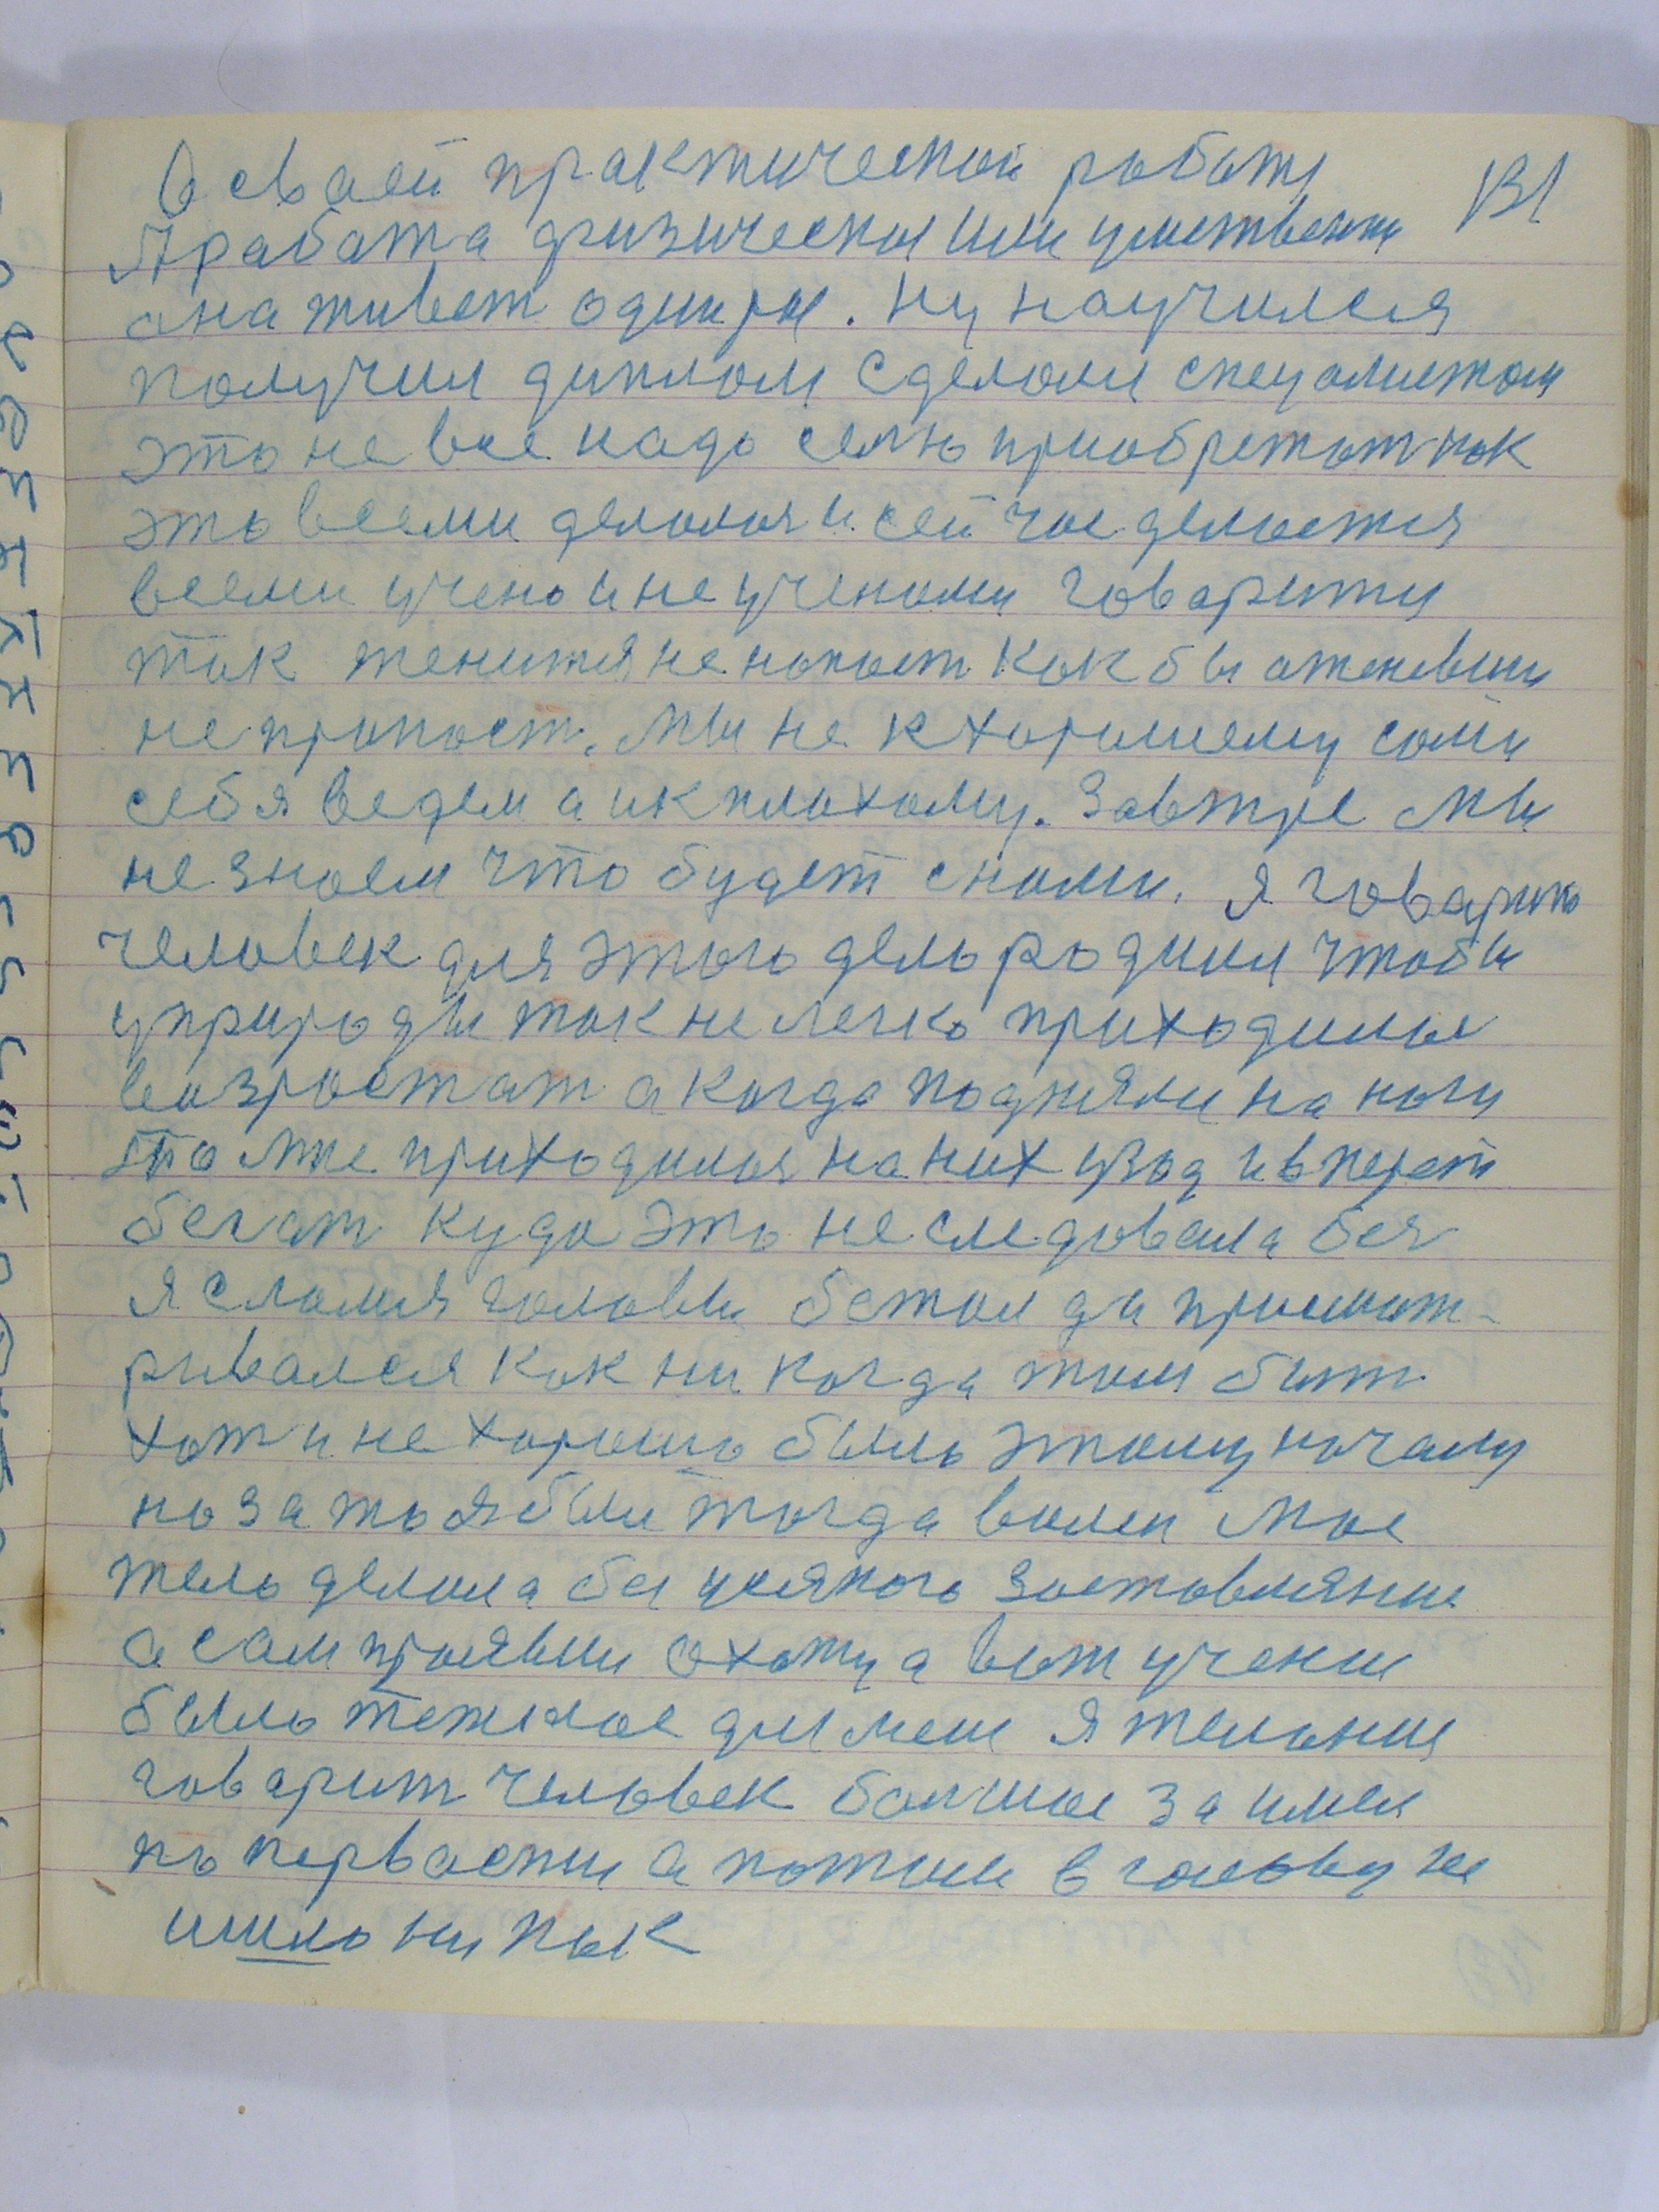 В сваей практической работы
131
А работа физическая или умственна
она живет один ра. Ну научился
получил диплом сделали специалистом
это не все надо семю приобретат как
это всеми делалося и сейчас делается
всеми учено и не учеными говарити
так женится не напаст как бы оженевши
не пропаст. Мы не к хорошему сами
себя ведем а и к плохому. Завтре мы
не знаем что будет снами. Я говарю
человек для этого дела родился чтобы
уприроды так не легко приходился
возростат а когда подняли на ноги
то мне приходилося на них узад и вперет
бегат куда это не следовала бы
я сломя головы бежал да присмат-
ривался как ни когда там быт
хот и не хорошо было этому началу
но зато я был тогда волен мое
тело делала без усякого заставляния
а сам проявил охоту а вот учении
было тежолое для мени я желания
говарит человек болшое за имел
по первасти а потом в голову не
шло ни как